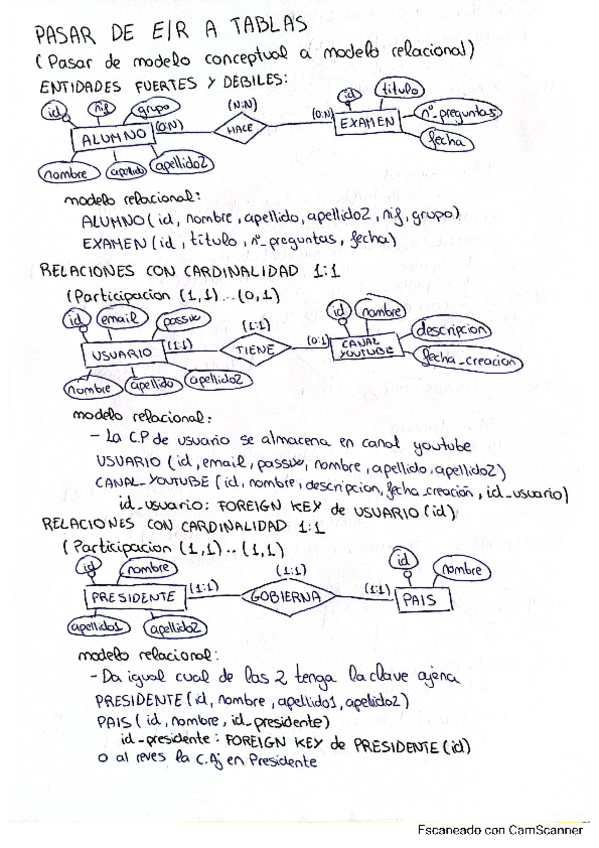 PASAR DE E/R A TABLAS
(Pasar de modelo conceptual al modelo relacional)
ENTIDADES FUERTES Y DEBILES:
id nif grupo (N:N) id titulo
ALUMNO (0:N) HACE (0:N) EXAMEN nº_preguntas
nombre apellido apellido2 fecha
modelo relacional:
ALUMNO (id, nombre, apellido, apellido2, nif, grupo)
EXAMEN (id, titulo, nº_preguntas, fecha)
RELACIONES CON CARDINALIDAD 1:1
(Participacion (1,1)...(0,1)
id email passw (1:1) id nombre
USUARIO (1:1) TIENE (0:1) CANAL YOUTUBE descripcion
nombre apellido apellido2 fecha_creacion
modelo relacional:
- La C.P de usuario se almacena en canal youtube
USUARIO (id, email, passw, nombre, apellido, apellido2)
CANAL_YOUTUBE (id, nombre, descripcion, fecha_creación, id_usuario)
id_usuario: FOREIGN KEY de USUARIO (id)
RELACIONES CON CARDINALIDAD 1:1
(Participacion (1,1)..(1,1)
id nombre (1:1) id nombre
PRESIDENTE (1:1) GOBIERNA (1:1) PAIS
apellido1 apellido2
modelo relacional:
- Da igual cual de las 2 tenga la clave ajena
PRESIDENTE (id, nombre, apellido1, apellido2)
PAIS (id, nombre, id_presidente)
id_presidente: FOREIGN KEY de PRESIDENTE (id)
o al reves la C.Aj en Presidente
Escaneado con CamScanner